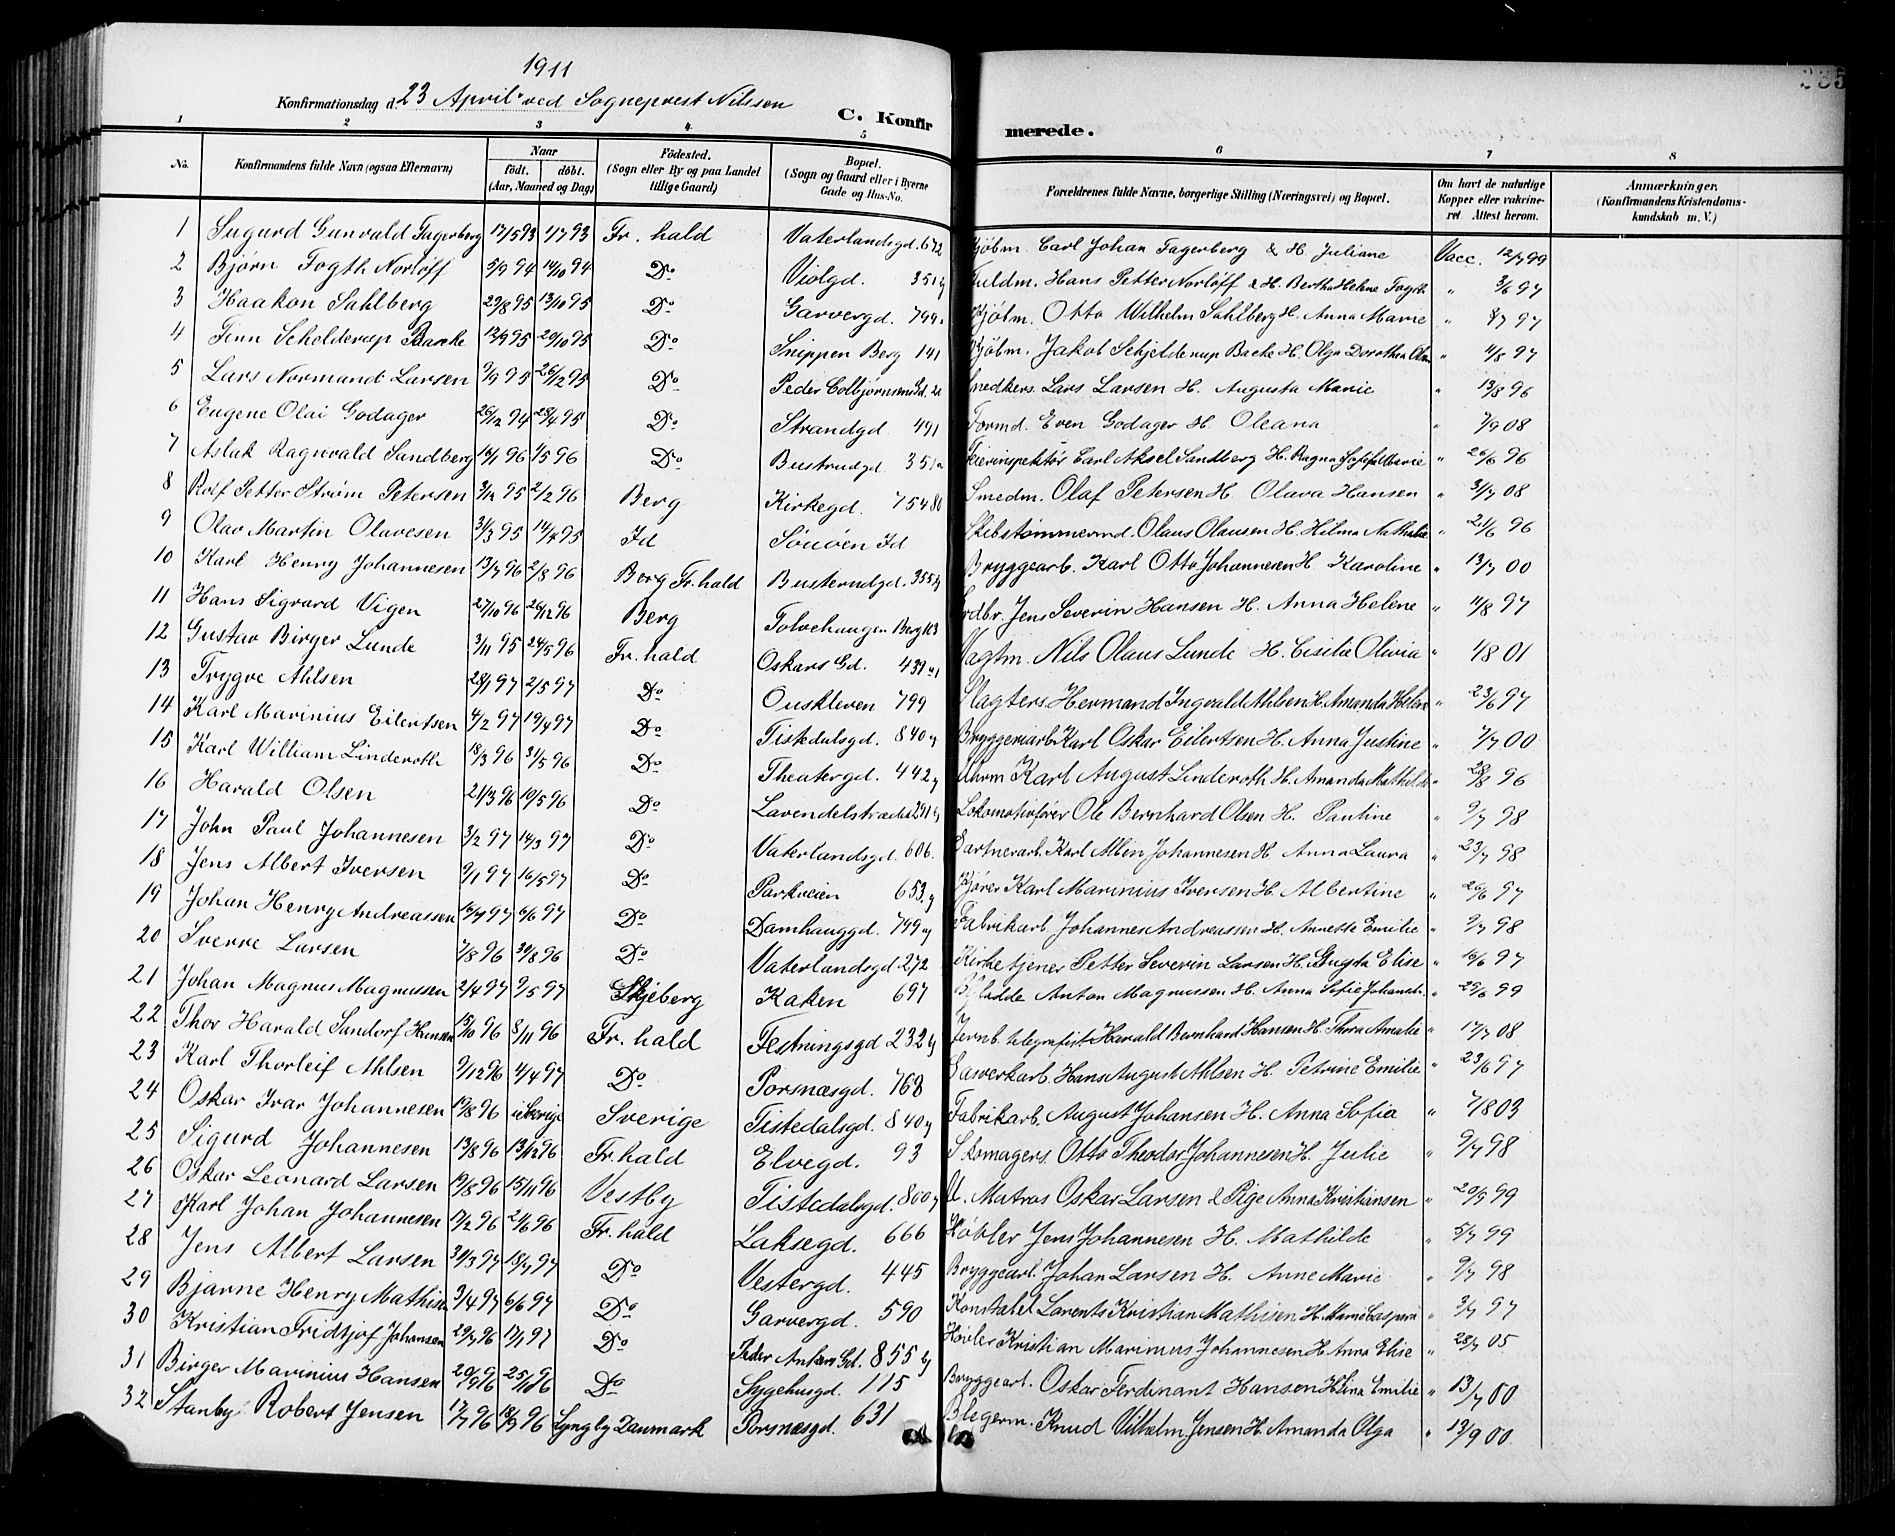 1911
Konfirmationsdag d. 23 April ved Sogneprest Nilssen
C. Konfirmerede.
235
1 2 3 4 5 6 7 8
No. Konfirmandens fulde Navn (ogsaa Efternavn) Naar födt. döbt. (Aar, Maaned og Dag) Födested. (Sogn eller By og paa Landet tillige Gaard) Bopæl. (Sogn og Gaard eller i Byerne Gade og Hus-No. Forældrenes fulde Navne, borgerlige Stilling (Næringsvei) og Bopæl. Om havt de naturlige Kopper eller vakcineret. Attest herom. Anmærkninger. (Konfirmandens Kristendomskundskab m. V.)
1 Sugurd Gunvald Fagerberg 17/5 93 1/7 93 Fr. hald Vaterlandsgd. 672 Kjöbm. Carl Johan Fagerberg & H. Juliane Vacc. 12/7 99
2 Bjørn Fogth Norløff 5/9 94 14/10 94 Do Violgd. 351 Fuldm. Hans Petter Norløff & H. Bertha Helene Fogth " 3/6 97
3 Haakon Sahlberg 29/8 95 13/10 95 Do Garvergd. 799 Kjöbm. Otto Wilhelm Sahlberg H. Anna Marie " 97
4 Finn Schelderup Backe 12/9 95 20/10 95 Do Snippen Berg 141 Kjöbm. Jakob Schjelderup Backe H. Olga Dorothea " 97
5 Lars Normand Larsen 9/9 95 26/12 95 Do Peder Colbjørnsens Gd. Snedkers. Lars Larsen H. Augusta Marie " 13/8 96
6 Eugene Olai Godager 26/12 94 28/4 95 Do Strandgd. 491 Formd. Even Godager H. Oleana " 7/9 08
7 Aslak Ragnvald Sandberg 14/1 96 1/5 96 Do Bustrudgd. 351 Feierinspektør Carl Aksel Sandberg H. Ragna Marie " 26/6 96
8 Rolf Petter Strøm Petersen 3/12 95 2/2 96 Berg Kirkegd. 754 Smedm. Olaf Petersen H. Olava Hansen " 3/7 08
9 Olav Martin Olavesen 31/3 95 14/4 95 Id Sauøen Id Skibstømmermd. Olaus Olausen H. Hilma Nathalie " 21/6 96
10 Karl Henry Johannesen 13/7 96 2/8 96 Berg Fr. hald Busterudgd. 355 Bryggearb. Karl Otto Johannesen H. Karoline " 13/7 00
11 Hans Sigvard Vigen 27/10 96 26/12 96 Berg Tolvehaugen Berg 103 Jordbr. Jens Severin Hansen H. Anna Helene " 11/8 97
12 Gustav Birger Lunde 3/11 95 24/5 96 Fr. hald Oskars Gd. 439 Vagtm. Nils Olaus Lunde H. Cisilie Olivia " 1/8 01
13 Trygve Ahlsen 28/1 97 2/5 97 Do Ouskleven 799 Slagters. Hermand Ingvald Ahlsen H. Amanda Helene " 23/6 97
14 Karl Marinius Eilertsen 4/2 97 19/4 97 Do Tistedalsgd. 840 Bryggeriarb. Karl Oskar Eilertsen H. Anna Justine " 7/7 00
15 Karl William Linderoth 18/3 96 31/5 96 Do Theatergd. 442 Uhrm Karl August Linderoth H. Amanda Mathilde " 28/8 96
16 Harald Olsen 21/3 96 10/5 96 Do Lavendelstrædet 291 Lokomotivfører Ole Bernhard Olsen H. Pauline " 9/7 98
17 John Paul Johannesen 3/2 97 14/3 97 Do Vaterlandsgd. 606. Gartnerarb. Karl Albin Johannesen H. Anna Laura " 23/7 98
18 Jens Albert Iversen 9/1 97 16/5 97 Do Parkveien 653 Kjører Karl Marinius Iversen H. Albertine " 26/6 97
19 Johan Henry Andreassen 16/4 97 6/6 97 Do Damhauggd. 799 Fabrikarb. Johannes Andreassen H. Annette Emilie " 9/7 98
20 Sverre Larsen 7/8 96 30/8 96 Do Vaterlandsgd 272 Kirketjener Petter Severin Larsen H. Gusta Elise " 16/6 97
21 Johan Magnus Magnussen 2/4 97 9/5 97 Skjeberg Kaken 697 Anton Magnussen H. Anna Sofie " 29/6 99
22 Thor Harald Sandorf Hansen 15/10 96 8/11 96 Fr. hald Festningsgd 232 Jernb. telegrafist Harald Bernhard Hansen H. Thora Amalie " 17/7 08
23 Karl Thorleif Ahlsen 9/12 96 4/4 97 Do Porsnæsgd. 768 Gasverkarb. Hans August Ahlsen H. Petrine Emilie " 23/6 97
24 Oskar Ivar Johannesen 19/8 96 i Sverige Sverige Tistedalsgd. 840 Fabrikarb. August Johansen H. Anna Sofia " 7/8 03
25 Sigurd Johannesen 13/8 96 13/12 96 Fr. hald Elvegd. 93 Skomagers. Otto Theodor Johannesen H. Julie " 9/7 98
26 Oskar Leonard Larsen 19/8 96 15/11 96 Vestby Tistedalsgd. 800 U. Matros Oskar Larsen & Pige Anna Kristiansen " 20/9 99
27 Karl Johan Johannesen 17/2 96 21/6 96 Fr. hald Laksegd. 666 Høvler Jens Johannesen H. Mathilde " 5/7 99
28 Jens Albert Larsen 31/3 97 18/7 97 Do Vestergd. 445 Bryggearb. Johan Larsen H. Anne Marie " 9/7 98
29 Bjarne Henry Mathisen 3/4 97 6/6 97 Do Garvergd. 590 Konstabel Lorents Kristian Mathisen H. Marie " 3/7 97
30 Kristian Fridtjof Johansen 29/7 96 17/1 97 Do Peder Ankers Gd. 855 Høvler Kristian Marinius Johannesen H. Anna Elise " 28/7 05
31 Birger Marinius Hansen 20/9 96 25/11 96 Do Sygehusgd. 115 Bryggearb. Oskar Ferdinant Hansen H. Lina Emilie " 13/7 00
32 Stanby Robert Jensen 17/7 96 18/9 96 Lyngby Danmark Porsnæsgd. 631 Blegerm. Knud Vilhelm Jensen H. Amanda Olga " 13/9 00